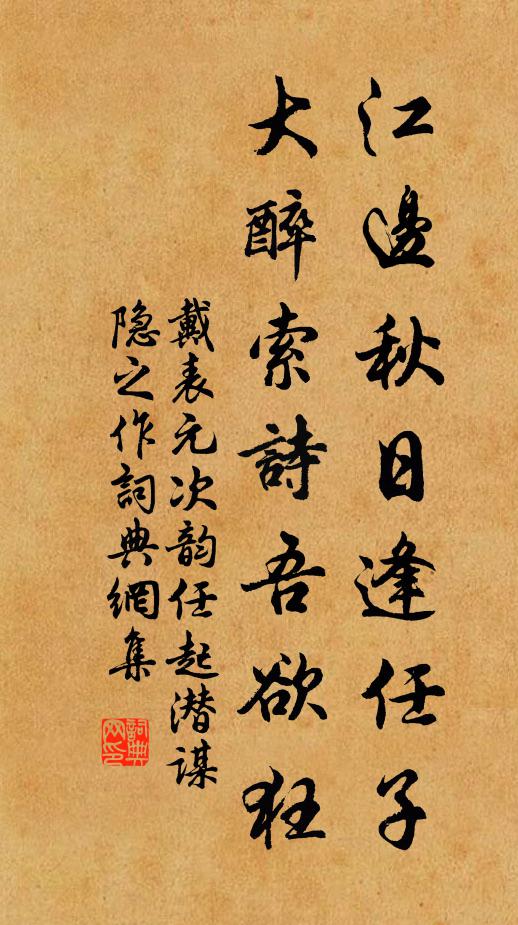 江邊秋日逢任子
大醉索詩吾欲狂
戴表元次韵任起潜謀
隐之作詞典網集
詞典
网印